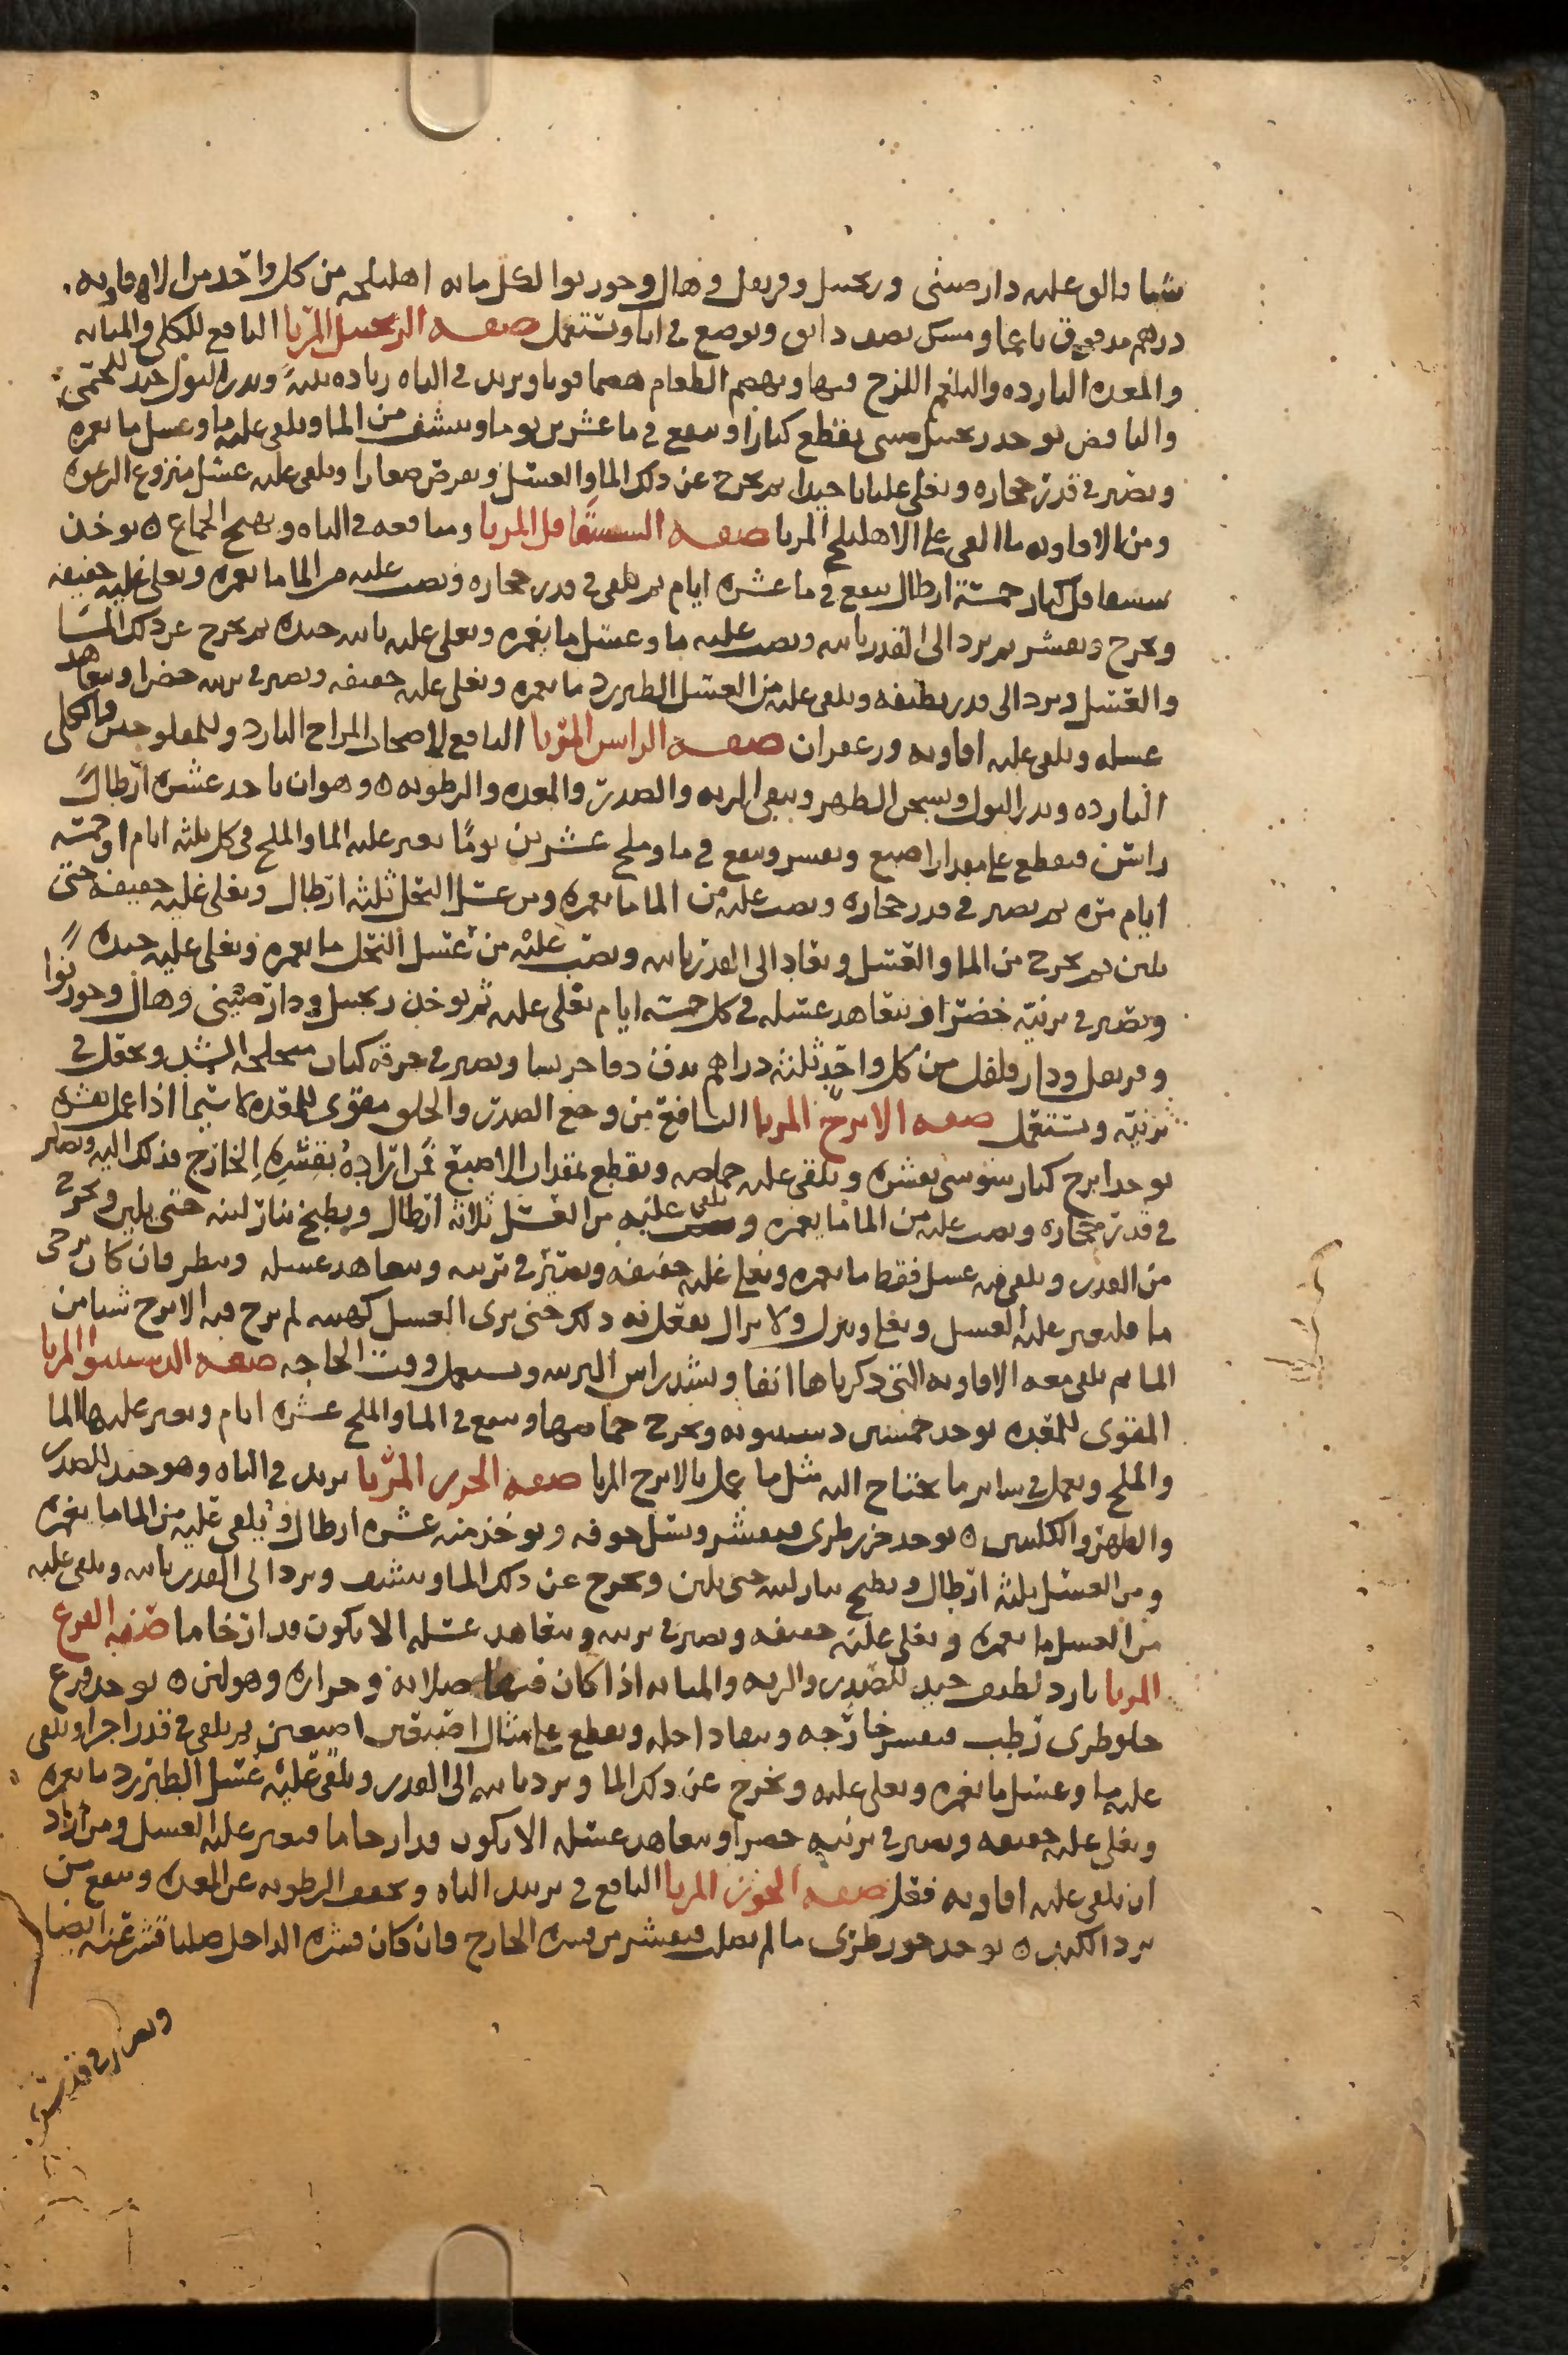 شيا والق عليه دارصينى وزنجبيل وقرنفل وهال وجوزبوا لكل مايه اهليلجه من كل واحد من الافاويه
درهم مدقوق ناعما ومسك نصف دانق ويوضع فى انا ويستعمل صفه الزنجبيل المربا النافع للكلى والمثانه
والمعده البارده والبلغم اللزج فيها ويهضم الطعام هضما قويا ويزيد فى الباه زياده بينةً ويدر البول جيد للحمى
والنافض يوخذ زنجبيل صينى يقطع كبارا وينقع فى ما عشرين يوما وينشف من الما ويلقى عليه ما وعسل ما يغمره
ويصير فى قدر حجاره ويغلى غليانا جيدا ثم يخرج عن ذلك الما والعسل ويقرض صغارا ويلقى عليه عسل منزوع الرغوه
ومن الافاويه ما القى على الاهليلج المربا صفه السسقاقل المربا ومنافعه فى الباه ويهيج الجماع ه يوخذ
سسقاقل كبار خمسة ارطال ينقع فى ما عشره ايام ثم يلقى فى قدر حجاره ويصب عليه من الما ما يغمره ويغلى غليه خفيفه
ويخرج ويقشر ثم يرد الى القدر ثانيه ويصب عليه ما وعسل ما يغمره ويغلى غليه ثانيه جيده ثم يخرج عن ذلك الما
والعسل ويرد الى قدر نظيفه ويلقى عليه من العسل الطبرزد ما يغمره ويغلى غليه خفيفه ويصير فى برنيه خضرا ويتعاهد
عسله ويلقى عليه افاويه وزعفران صفه الراسن المربا النافع لاصحاب المزاج البارد وللمفلوجين والكلى
البارده ويدر البول ويسخن الظهر وينقى الريه والصدر والمعده والرطوبه ه وهو ان ياخذ عشره ارطال
راسن فيقطع على مقدار اصبع ويقشر وينقع فى ما وملح عشرين يومًا يغير عليه الما والملح فى كل ثلثه ايام او خمسه
ايام مره ثم يصير فى قدر حجاره ويصب عليه من الما ما يغمره ومن عسل النحل ثلثه ارطال ويغلى غليه خفيفه حتى
يلين ثم يخرج من الما والعسل ويعاد الى القدر ثانيه ويصب عليه من عسل النحل ما يغمره ويغلى غليه جيده
ويصير فى برنيه خضرا ويتعاهد عسله فى كل خمسه ايام يغلى غليه ثم يوخذ زنجبيل ودارصينى وهال وجوزبوا
وقرنفل ودارفلفل من كل واحد ثلثه دراهم يدق دقا جريشا ويصير فى خرقه كتان متخلخله الشد ويجعل فى
برنيه ويستعمل صفه الاترج المربا النافع من وجع الصدر والحلق مقوى للمعده لا سيما اذا عمل بقشره
يوخذ اترج كبار سوسى بقشره ويلقى عنه حماضه ويقطع بمقدار الاصبع فمن اراده بقشره الخارج فذلك اليه ويصير
فى قدر حجاره ويصب عليه من الما ما يغمره ويلقى عليه من العسل ثلاثه ارطال ويطبخ بنار لينه حتى يلين ويخرج
من القدر ويلقى فيه عسل فقط ما يغمره ويغلى غليه خفيفه ويصير فى برنيه ويتعاهد عسله وينظر فان كان يرخى
ما فليغير عليه العسل ويغلى وينزل ولا يزال يفعل به ذلك حتى يرى العسل كهيئته لم يرخ فيه الاترج شيا من
الما ثم يلقى معه الافاويه التى ذكرناها انفا ويشد راس البرنيه ويستعمل وقت الحاجه صفه الدستنبوا المربا
المقوى للمعده يوخذ خمسين دستنبويه ويخرج حماضها وينقع فى الما والملح عشره ايام ويغير عليها الما
والملح ويعمل فى ساير ما يحتاج اليه مثل ما عمل بالاترج المربا صفه الجزر المربا يزيد فى الباه وهو جيد للصدر
والظهر والكليتين ه يوخذ جزر طرى فيقشر ويسل جوفه ويوخذ منه عشره ارطال ويلقى عليه من الما ما يغمره
ومن العسل ثلثه ارطال ويطبخ بنار لينه حتى يلين ويخرج عن ذلك الما وينشف ويرد الى القدر ثانيه ويلقى عليه
من العسل ما يغمره ويغلى غليه خفيفه ويصير فى برنيه ويتعاهد عسله الا يكون قد ارخا ما صفه القرع
المربا بارد لطيف جيد للصدر والريه والمثانه اذا كان فيها صلابه وحراره وهو لين ه يوخذ قرع
حلو طرى رطب فيقشر خارجه وينقا داخله ويقطع على مثال اصبعين اصبعين ثم يلقى فى قدر اجر ويلقى
عليه ما وعسل ما يغمره ويغلى غليه ويخرج عن ذلك الما ويرد ثانيه الى القدر ويلقى عليه عسل الطبرزد ما يغمره
ويغلى غليه خفيفه ويصير فى برنيه خضرا ويتعاهد عسله الا يكون قد ارخا ما فيغير عليه العسل ومن اراد
ان يلقى عليه افاويه فعل صفه الجوز المربا النافع فى يزيد الباه ويجفف الرطوبه عن المعده وينفع من
برد الكبد ه يوخذ جوز طرى ما لم يصلب فيقشر من قشره الخارج وان كان قشره الداخل صلبا قشر عنه ايضا
ويصير فى قدر